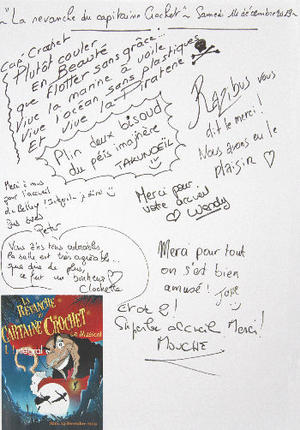 "La revanche du capitaine Crochet" ~ Samedi 14 décembre 2019 ~
Capt Crochet
Plutôt couler
en Beauté
que Flotter sans grâce...
Vive la marine à voile
Vive l'océan sans plastiques
Et vive la Piraterie
Plin deux bisoud
du péis imajnère
TAKUNOEIL
Razibus vous
dit le merci!
Nous avons eu le
plaisir
Merci à vous
pour l'accueil
de Belley l'intégral
Peter
Merci pour
votre accueil
Wendy
Vous êtes tous adorables,
la salle est très agréable...
que dire de plus,
ce fut un bonheur
Clochette
Merci pour tout
on s'est bien
amusé!
Superbe accueil Merci!
MOUCHE
LA REVANCHE DU
CAPITAINE CROCHET
Le Musical
L'Intégral